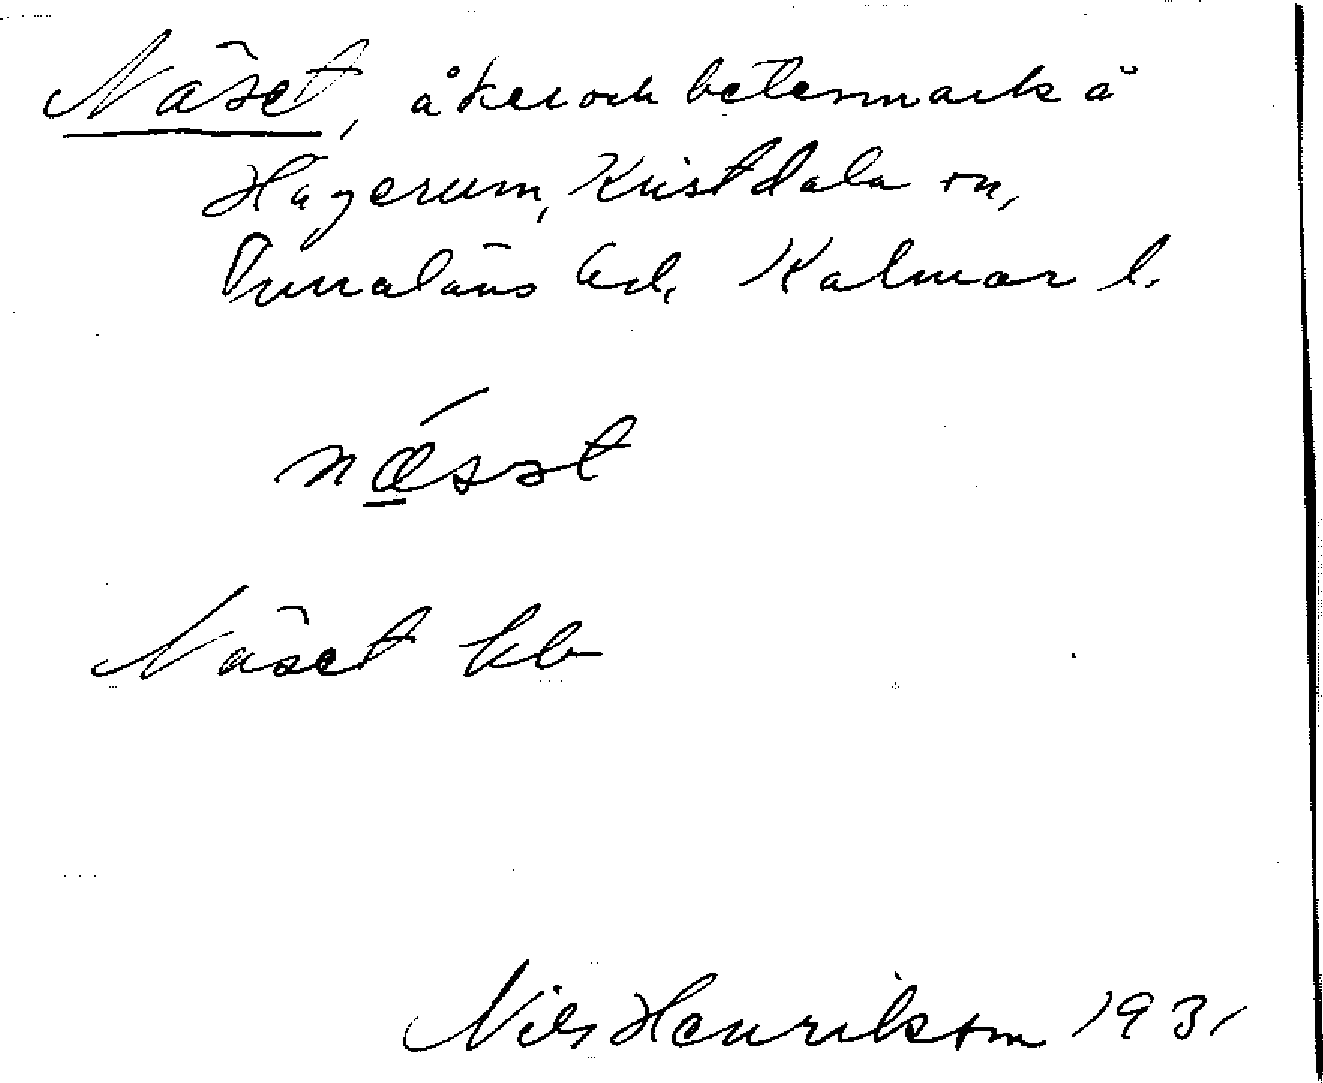 Näset, åker och betesmark å
Hagerum, Kristdala sn,
Tunaläns hd, Kalmar l.
nǽ̲sət
Näset kb
Nils Henrikson 1931